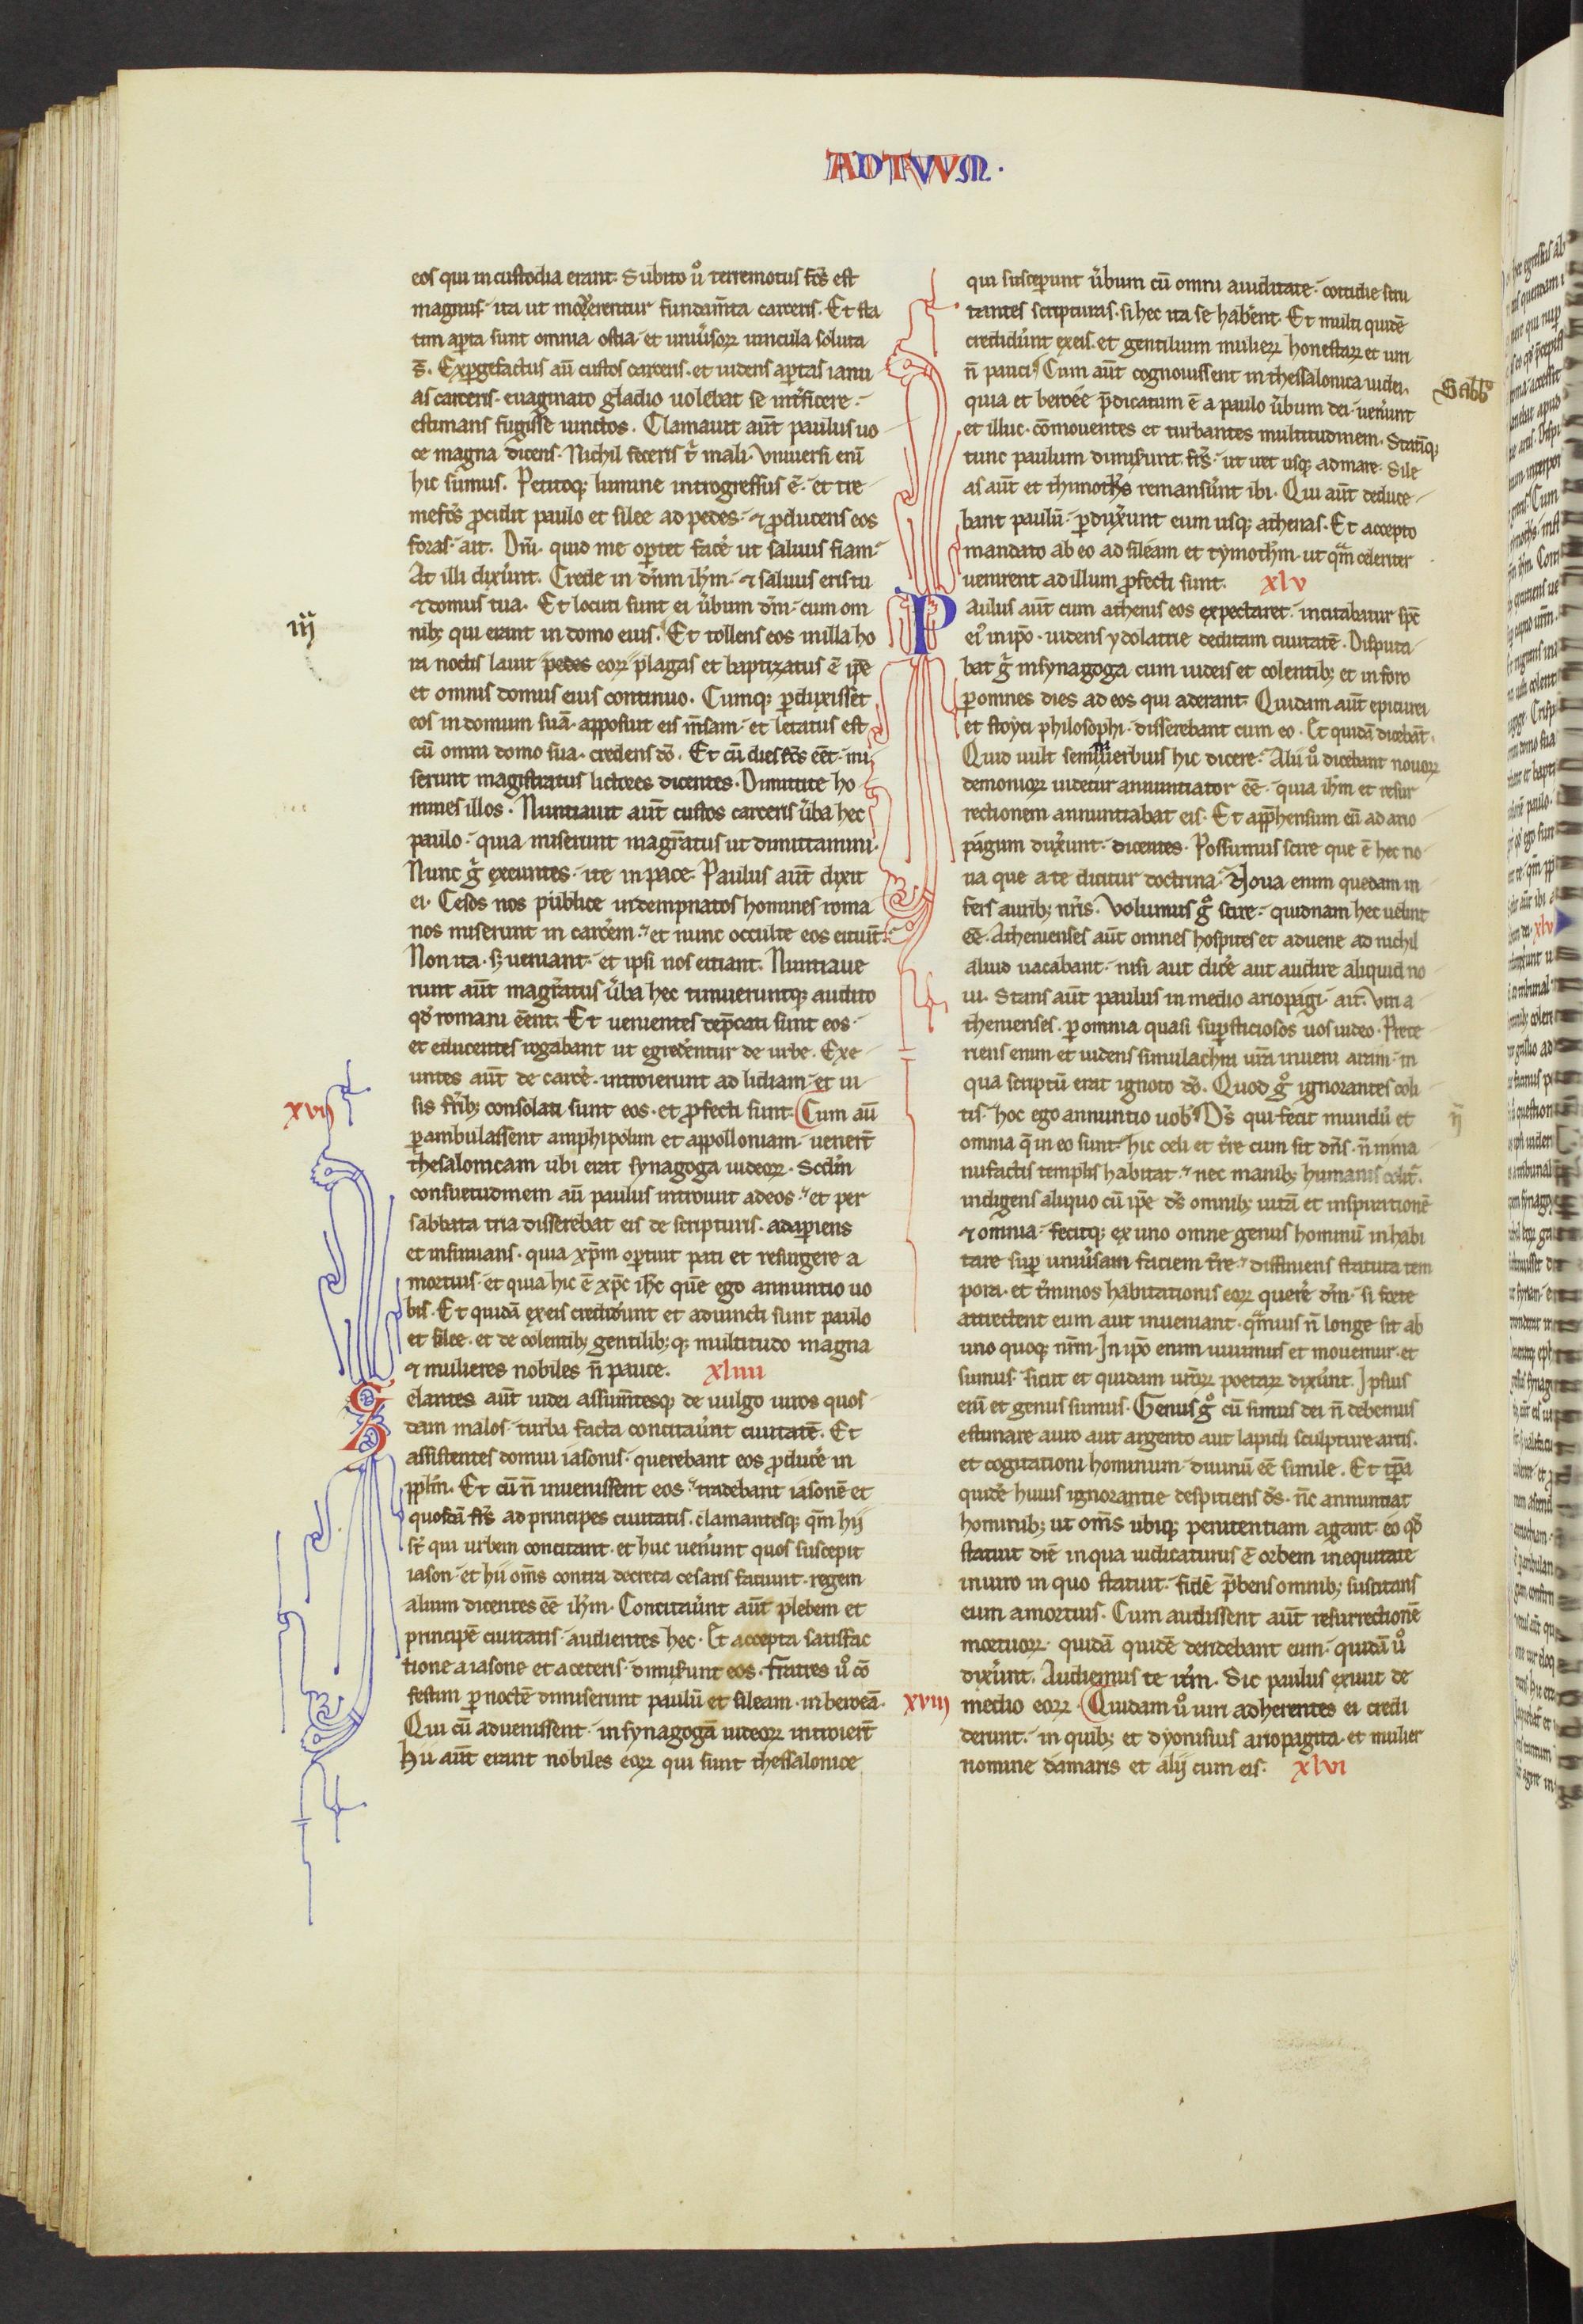 ACTVVM·
eos qui in custodia erant. Subito u͛o terremotus fc̄s est
magnus· ita ut mouerentur fundam̄ta carceris. Et sta
tim aꝑta sunt omnia ostia· et uniu͛sorꝝ uincula soluta
s̄. Exꝑgefactus aut̄ custos carceris· et uidens aꝑtas ianu
as carceris· euaginato gladio uolebat se int͛ficere·
estimans fugisse uinctos. Clamauit aut̄ paulus uo
ce magna dicens. Nichil feceris t͛ mali. Vniuersi eni
hic sumus. Petitoqꝫ lumine introgressus ē· et tre
mefc̄s ꝓcidit paulo et silee ad pedes· ⁊ ꝓducens eos
foras· ait. Dn̄i· quid me oꝑtet face͛ ut saluus fiam·
At illi dix͛unt. Crede in dn̄m ih̄m· ⁊ saluus eris tu
⁊ domus tua. Et locuti sunt ei u͛bum dn̄i· cum om
nibꝫ qui erant in domo eius. Et tollens eos in illa ho
ra noctis lauit pedes eorꝝ plagas et baptizatus ē ip̄e
et omnis domus eius continuo. Cumqꝫ ꝑduxisset
eos in domum suā· apposuit eis m̄sam· et letatus est
cū omni domo sua· credens dō. Et cū dies fc̄s eēt· mi
serunt magistratus lictores dicentes. Dimittite ho
mines illos. Nuntiauit aut̄ custos carceris u͛ba hec
paulo· quia miserunt magr̄atus ut dimittamini·
Nunc g͛ exeuntes· ite in pace. Paulus aut̄ dixit
ei. Cesos nos publice indempnatos homines roma
nos miserunt in carcerem· et nunc occulte eos eiciūt·
Non ita· sꝫ ueniant· et ipsi nos eiciant. Nuntiaue
runt aut̄ magr̄atus u͛ba hec timueruntqꝫ audito
qd͛ romani eēnt. Et uenientes dep̄cati sunt eos·
et educentes rogabant ut egrederentur de urbe. Exe
untes aut̄ de carce͛· introierunt ad lidiam· et ui
xvii
sis fr̄ibꝫ consolati sunt eos· et ꝓfecti sunt. Cum aū
ꝑambulassent amphipolim et appolloniam· uener̄t
thesalonicam ubi erat synagoga iudeorꝝ. Scd̄m
consuetudinem aū paulus introiuit ad eos· et per
sabbata tria disserebat eis de scripturis· adaꝑiens
et insinuans· quia xp̄m oꝑtuit pati et resurgere a
mortuis· et quia hic ē xp̄c ih̄c quē ego annuntio uo
bis. Et quidā ex eis credid͛unt et adiuncti sunt paulo
et silee· et de colentibꝫ gentilibꝫqꝫ multitudo magna
⁊ mulieres nobiles n̄ pauce. xliiii
Zelantes aut̄ iudei assum̄tesqꝫ de uulgo uiros quos
dam malos· turba facta concitau͛unt ciuitatē. Et
assistentes domui iasonis· querebant eos ꝓduce͛ in
pplm̄. Et cū n̄ inuenissent eos· tradebant iasonē et
quosdā fr̄s ad principes ciuitatis· clamantesqꝫ qm̄ hii
sr̄ qui urbem concitant· et huc uen͛unt quos suscepit
iason· et hii om̄s contra decreta cesaris faciunt· regem
alium dicentes eē ih̄m. Concitau͛unt aut̄ plebem et
principē ciuitatis· audientes hec. Et accepta satisfac
tione a iasone et a ceteris· dimis͛unt eos. Fratres u͛o cō
festim ꝑ noctē dimiserunt paulū et sileam· in beroeā.
Qui cū aduenissent· in synagogā iudeorꝝ introier̄t
Hii aut̄ erant nobiles eorꝝ qui sunt thessalonice
iij
qui susceꝑunt u͛bum cū omni auiditate· cottidie scru
tantes scripturas· si hec ita se haberent. Et multi quidē
credid͛unt ex eis· et gentilium mulierꝝ honestarꝝ et uiri
n̄ pauci. Cum aut̄ cognouissent in thessalonica iudei·
quia et beroee p̄dicatum ē a paulo u͛bum dei· uen͛unt
et illuc· cōmouentes et turbantes multitudinem. Statīqꝫ
tunc paulum dimis͛unt fr̄s· ut iret usqꝫ ad mare. Sile
as aut̄ et thimoth͛s remans͛unt ibi. Qui aut̄ deduce
bant paulū· ꝑdux͛unt eum usqꝫ athenas. Et accepto
mandato ab eo ad sileam et tymoth͛m· ut qm̄ celeriter
uenirent ad illum ꝓfecti sunt. xlv
Paulus aut̄ cum athenis eos expectaret· incitabatur sp̄c
ei͛ in ip̄o· uidens ydolatrie deditam ciuitatē. Disputa
bat g͛ in synagoga cum iudeis et colentibꝫ et in foro
ꝑ omnes dies ad eos qui aderant. Quidam aut̄ epicurei
et stoyci philosophi· disserebant cum eo. Et quidā dicebāt·
Quid uult seminiuerbius hic dicere· Alii u͛o dicebant nouorꝝ
demoniorꝝ uidetur annuntiator eē· quia ih̄m et resur
rectionem annuntiabat eis. Et app̄hensum eū ad ario
pagum dux͛unt· dicentes. Possumus scire que ē hec no
ua que a te dicitur doctrina· Noua enim quedam in
fers auribꝫ nr̄is. Volumus g͛o scire· quidnam hec uelint
eē. Athenienses aut̄ omnes hospites et aduene ad nichil
aliud uacabant· nisi aut dice͛ aut audire aliquid no
ui. Stans aut̄ paulus in medio ariopagi· ait. Viri a
thenienses· ꝑ omnia quasi suꝑsticiosos uos uideo. Prete
riens enim et uidens simulachra ur̄a inueni aram· in
qua scriptū erat ignoto dō. Quod g͛o ignorantes coli
tis· hoc ego annuntio uob͛. Ds̄ qui fecit mundū et
omnia q̄ in eo sunt· hic celi et tr̄e cum sit dn̄s· n̄ in ma
nufactis templis habitat· nec manibꝫ humanis colit͛·
indigens aliquo cū ip̄e ds̄ omnibꝫ uitā et inspirationē
⁊ omnia· fecitqꝫ ex uno omne genus hominū inhabi
tare suꝑ uniu͛sam faciem tr̄e· diffiniens statuta tem
pora· et t͛minos habitationis eorꝝ quere͛ dm̄· si forte
attrectent eum aut inueniant· qmuis n̄ longe sit ab
uno quoqꝫ nr̄m. In ip̄o enim uiuimus et mouemur· et
sumus· sicut et quidam ur̄orꝝ poetarꝝ dix͛unt. Ipsius
enī et genus sumus. Genus g͛o cū simus dei n̄ debemus
estimare auro aut argento aut lapidi sculpture artis·
et cogitationi hominum· diuinū eē simile. Et tp̄a
quidē huius ignorantie despitiens ds̄· nc̄ annuntiat
hominibꝫ ut om̄s ubiqꝫ penitentiam agant· eo qd͛
statuit diē in qua iudicaturus ē orbem in equitate
in uiro in quo statuit· fidē p̄bens omnibꝫ suscitans
eum a mortuis. Cum audissent aut̄ resurrectionē
mortuorꝝ· quidā quidē deridebant eum· quidā u͛o
dix͛unt. Audiemus te itm̄. Sic paulus exiuit de
xviii
medio eorꝝ. Quidam u͛o uiri adherentes ei credi
derunt· in quibꝫ et dyonisius ariopagita· et mulier
nomine damaris et alij cum eis. xlvi
Sabb͛o